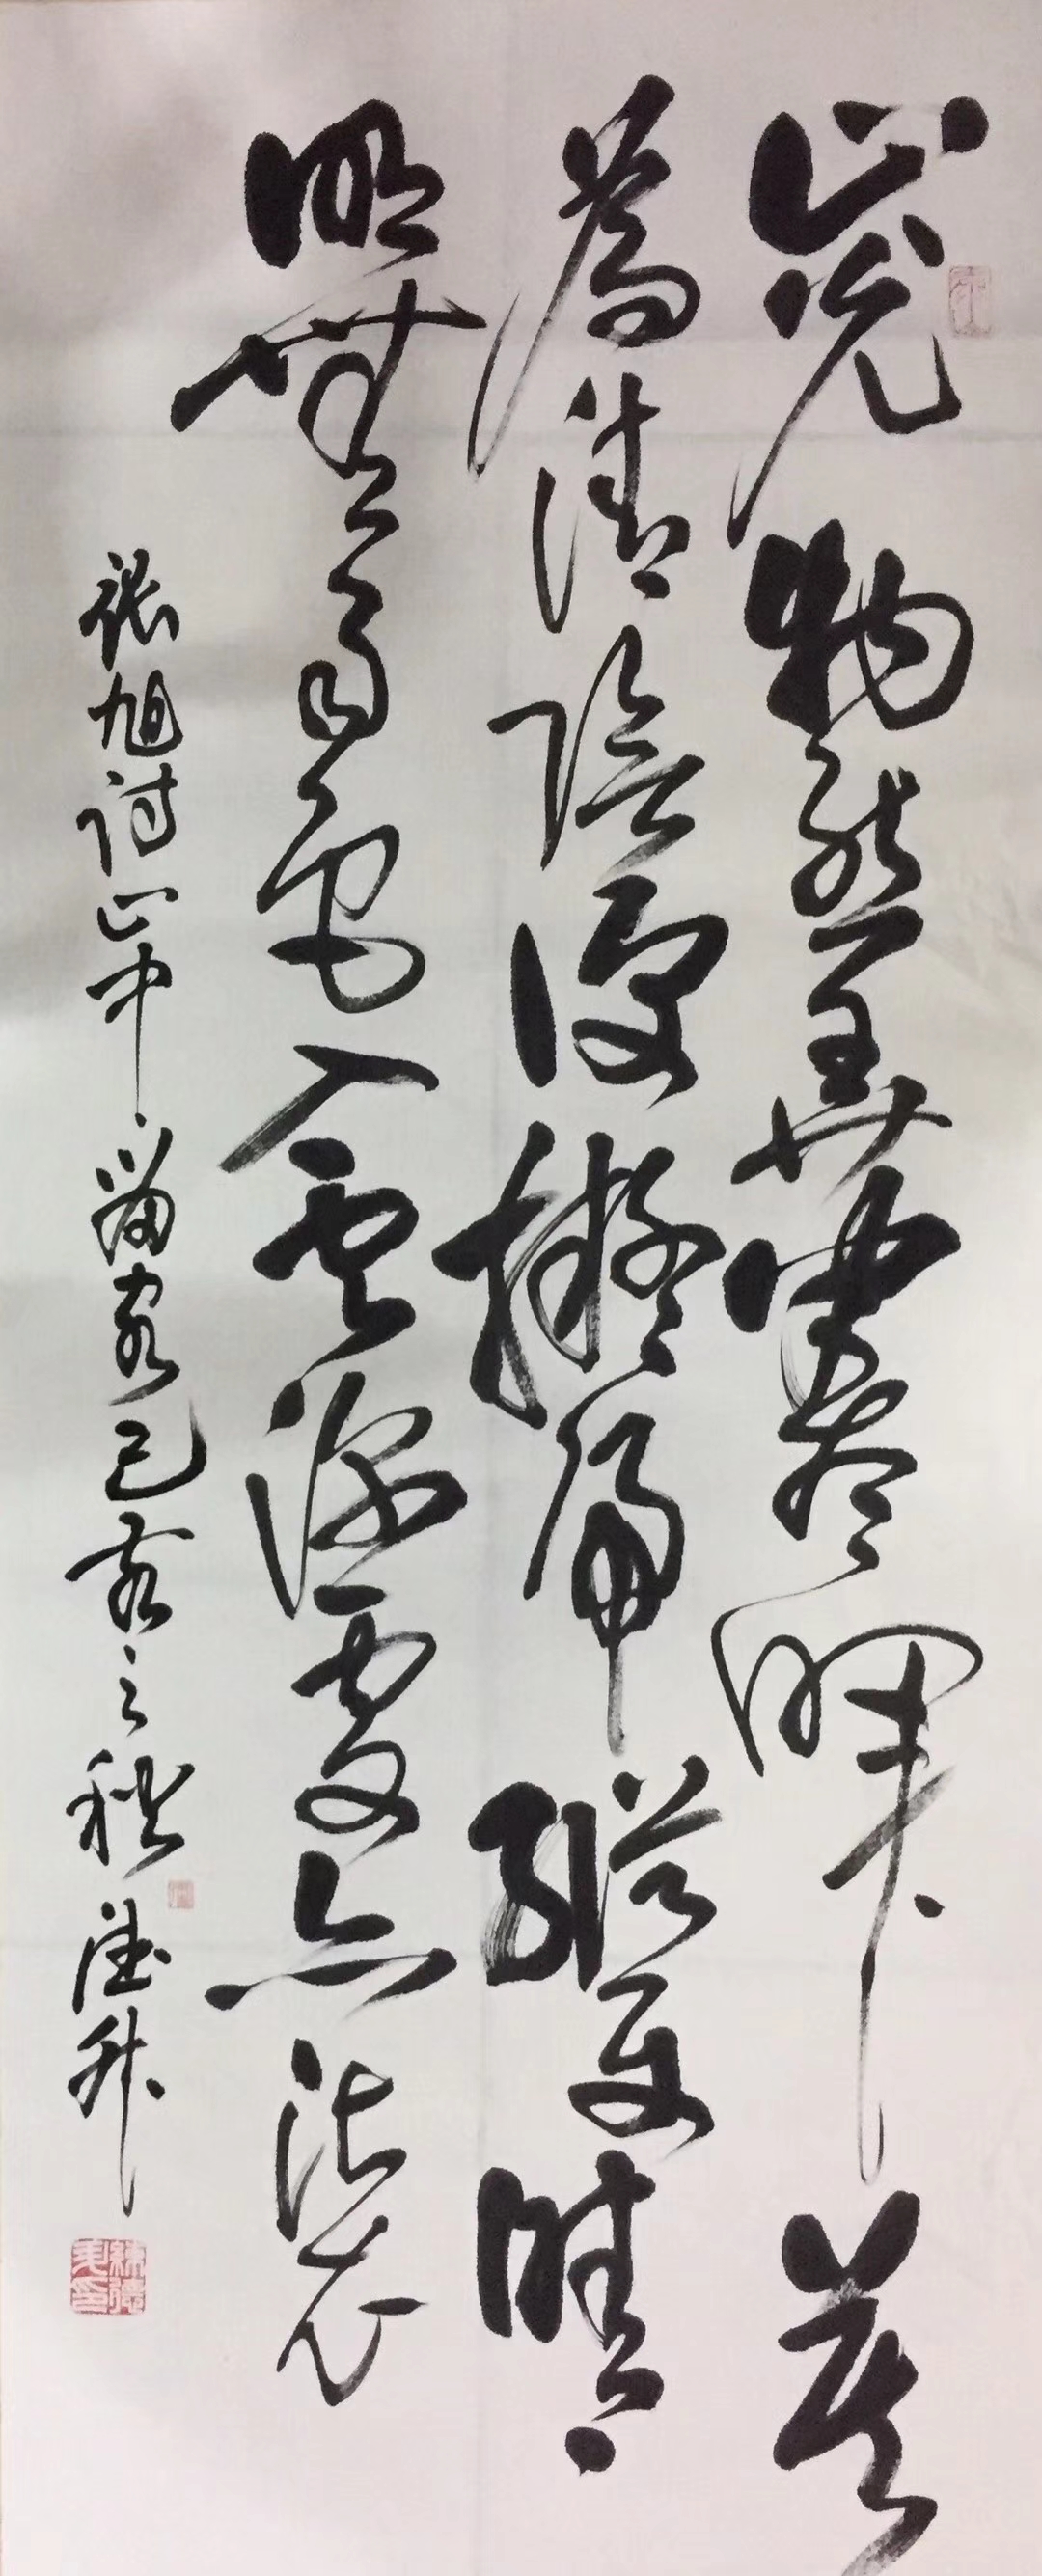 山光物態弄春暉莫
為清陰便擬歸縱使晴
明無雨色入雲深處亦沾衣
張旭詩山中留客己亥之秋德升